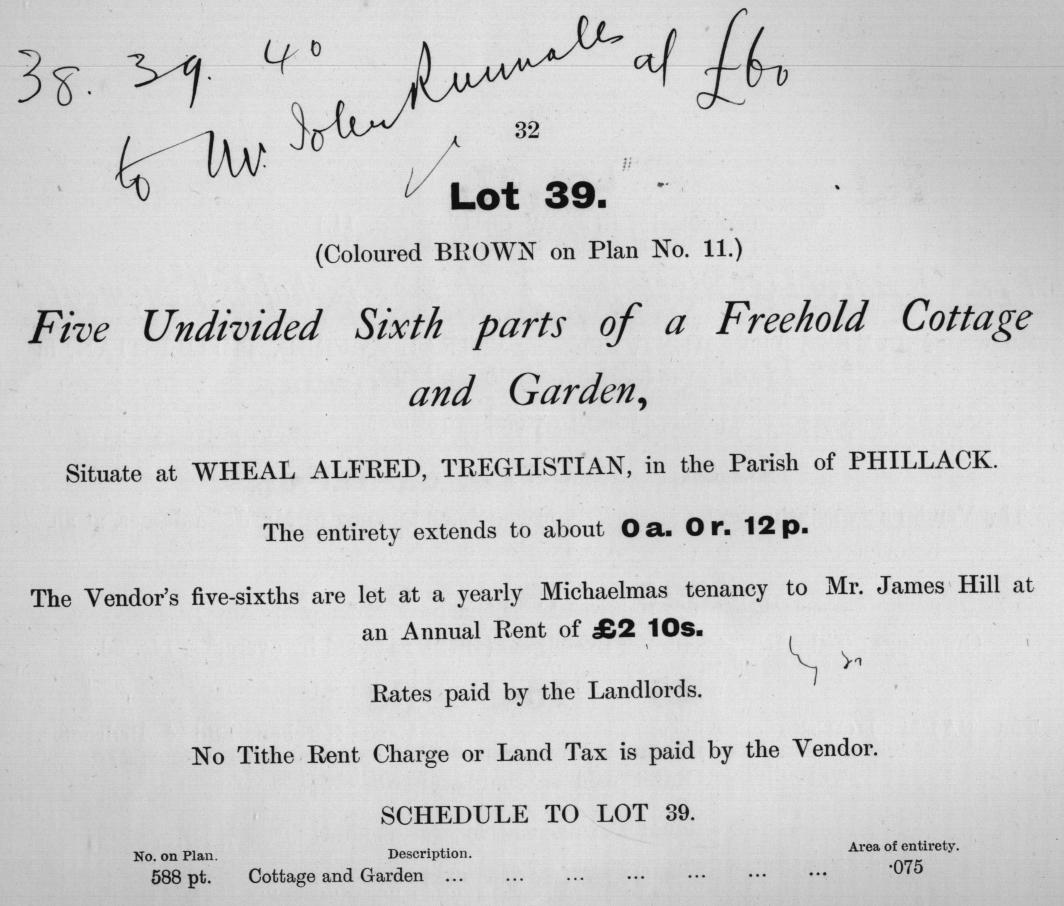 38. 39. 40
to Mr. John Runnalls at £60
32
Lot 39.
(Coloured BROWN on Plan No. 11.)
Five Undivided Sixth parts of a Freehold Cottage
and Garden,
Situate at WHEAL ALFRED, TREGLISTIAN, in the Parish of PHILLACK.
The entirety extends to about 0 a. 0 r. 12 p.
The Vendor's five-sixths are let at a yearly Michaelmas tenancy to Mr. James Hill at
an Annual Rent of £2 10s.
Rates paid by the Landlords.
No Tithe Rent Charge or Land Tax is paid by the Vendor.
SCHEDULE TO LOT 39.
No. on Plan. Description. Area of entirety.
588 pt. Cottage and Garden ... ... ... ... ... ... ... ·075